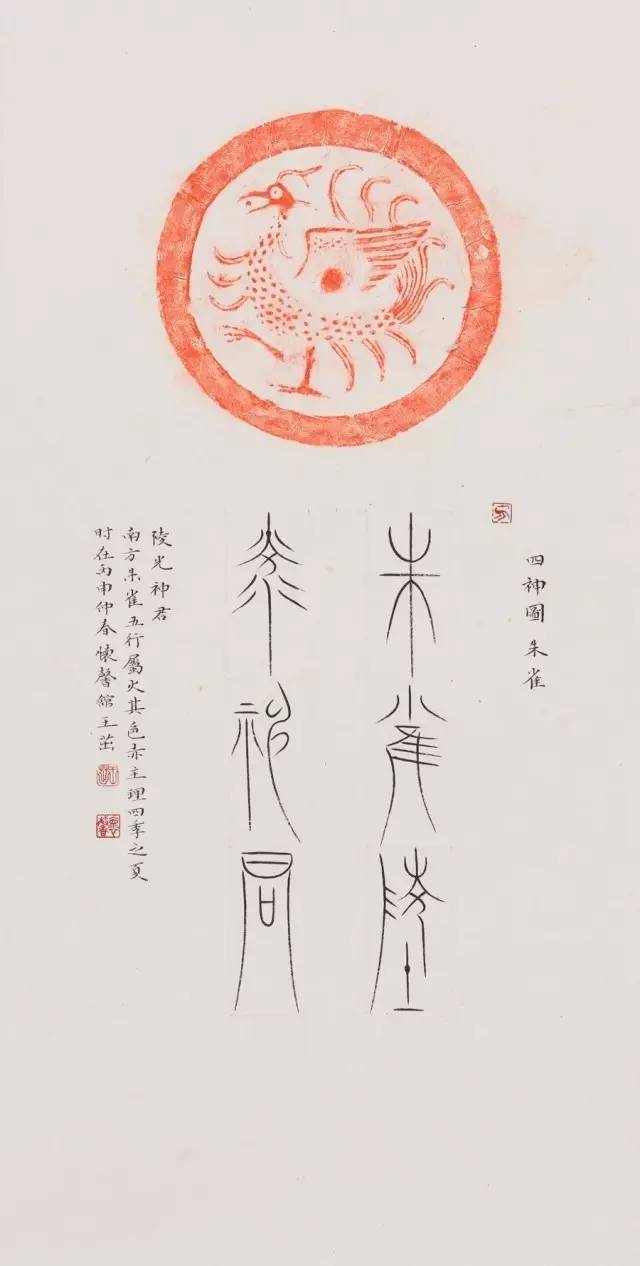 四神圖 朱雀
朱雀陵
光神君
陵光神君
南方朱雀五行屬火其色赤主理四季之夏
时在丙申仲春懷馨館王茁